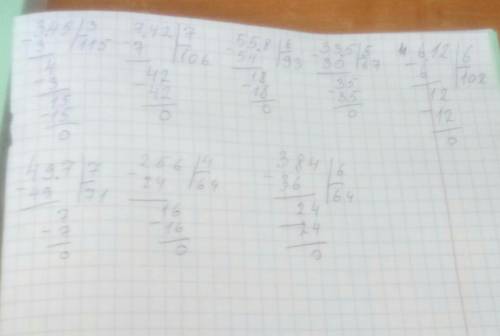 345 | 3
- 3 | 115
4
- 3
15
- 15
0
742 | 7
- 7 | 106
42
- 42
0
558 | 6
- 54 | 93
18
- 18
0
335 | 5
- 30 | 67
35
- 35
0
612 | 6
- 6 | 102
12
- 12
0
497 | 7
- 49 | 71
7
- 7
0
256 | 4
- 24 | 64
16
- 16
0
384 | 6
- 36 | 64
24
- 24
0